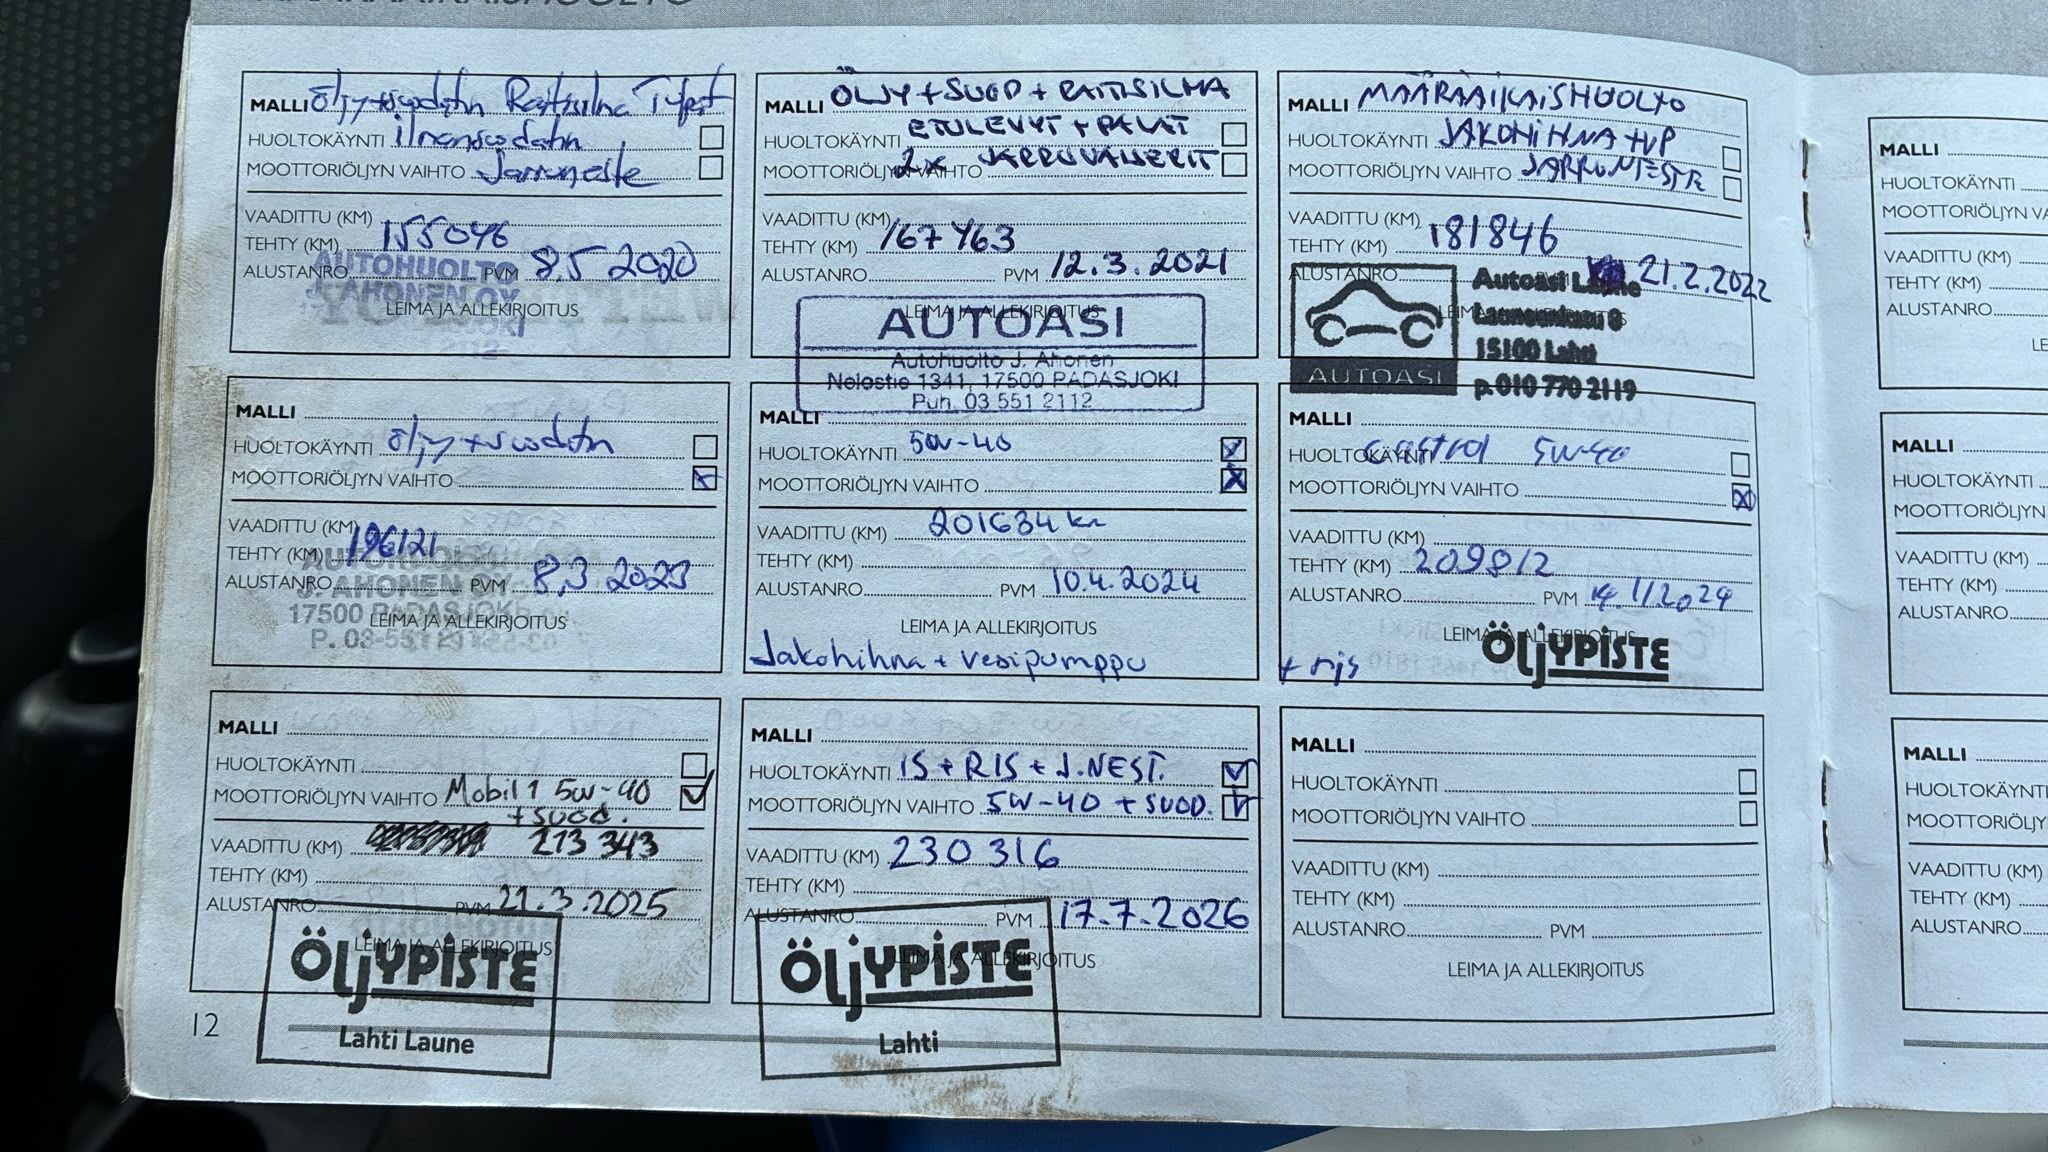 MÄÄRÄAIKAISHUOLTO
MALLI öljy+suodatin Raitisilma
HUOLTOKÄYNTI ilmansuodatin
MOOTTORIÖLJYN VAIHTO Jarruneste
VAADITTU (KM)
TEHTY (KM) 155046
ALUSTANRO PVM 8.5 2020
LEIMA JA ALLEKIRJOITUS
AUTOHUOLTO
J. AHONEN OY
MALLI ÖLJY + SUOD + RAITISILMA
HUOLTOKÄYNTI ETULEVYT + PALAT
MOOTTORIÖLJYN VAIHTO 2x JARRUVAIJERIT
VAADITTU (KM)
TEHTY (KM) 167463
ALUSTANRO PVM 12.3.2021
LEIMA JA ALLEKIRJOITUS
AUTOASI
Autohuolto J. Ahonen
Nelostie 1341, 17500 PADASJOKI
Puh. 03 551 2112
MALLI MÄÄRÄAIKAISHUOLTO
HUOLTOKÄYNTI JAKOHIHNA + VP
MOOTTORIÖLJYN VAIHTO JARRUNESTE
VAADITTU (KM)
TEHTY (KM) 181846
ALUSTANRO PVM 21.2.2022
LEIMA JA ALLEKIRJOITUS
AUTOASI
Autoasi Laune
Launeenkatu 8
15100 Lahti
p.010 770 2119
MALLI
HUOLTOKÄYNTI öljy+suodatin
MOOTTORIÖLJYN VAIHTO
VAADITTU (KM)
TEHTY (KM) 196121
ALUSTANRO PVM 8.3 2023
LEIMA JA ALLEKIRJOITUS
J. AHONEN OY
17500 PADASJOKI
P. 03-551 2112
MALLI
HUOLTOKÄYNTI 5W-40
MOOTTORIÖLJYN VAIHTO
VAADITTU (KM) 201634 km
TEHTY (KM)
ALUSTANRO PVM 10.4.2024
LEIMA JA ALLEKIRJOITUS
Jakohihna + vesipumppu
MALLI
HUOLTOKÄYNTI Castrol 5W-40
MOOTTORIÖLJYN VAIHTO
VAADITTU (KM)
TEHTY (KM) 209812
ALUSTANRO PVM 14.11.2024
LEIMA JA ALLEKIRJOITUS
ÖljYPiSTE
+ ris
MALLI
HUOLTOKÄYNTI
MOOTTORIÖLJYN VAIHTO Mobil 1 5W-40
+ suod.
VAADITTU (KM) 213 343
TEHTY (KM)
ALUSTANRO PVM 21.3.2025
LEIMA JA ALLEKIRJOITUS
ÖljYPiSTE
Lahti Laune
MALLI
HUOLTOKÄYNTI IS + RIS + J.NEST.
MOOTTORIÖLJYN VAIHTO 5W-40 + SUOD.
VAADITTU (KM) 230 316
TEHTY (KM)
ALUSTANRO PVM 17.7.2026
LEIMA JA ALLEKIRJOITUS
ÖljYPiSTE
Lahti
MALLI
HUOLTOKÄYNTI
MOOTTORIÖLJYN VAIHTO
VAADITTU (KM)
TEHTY (KM)
ALUSTANRO PVM
LEIMA JA ALLEKIRJOITUS
12
MALLI
HUOLTOKÄYNTI
MOOTTORIÖLJYN VA
VAADITTU (KM)
TEHTY (KM)
ALUSTANRO
LE
MALLI
HUOLTOKÄYNTI
MOOTTORIÖLJYN
VAADITTU (KM)
TEHTY (KM)
ALUSTANRO
MALLI
HUOLTOKÄYNTI
MOOTTORIÖLJY
VAADITTU (KM)
TEHTY (KM)
ALUSTANRO